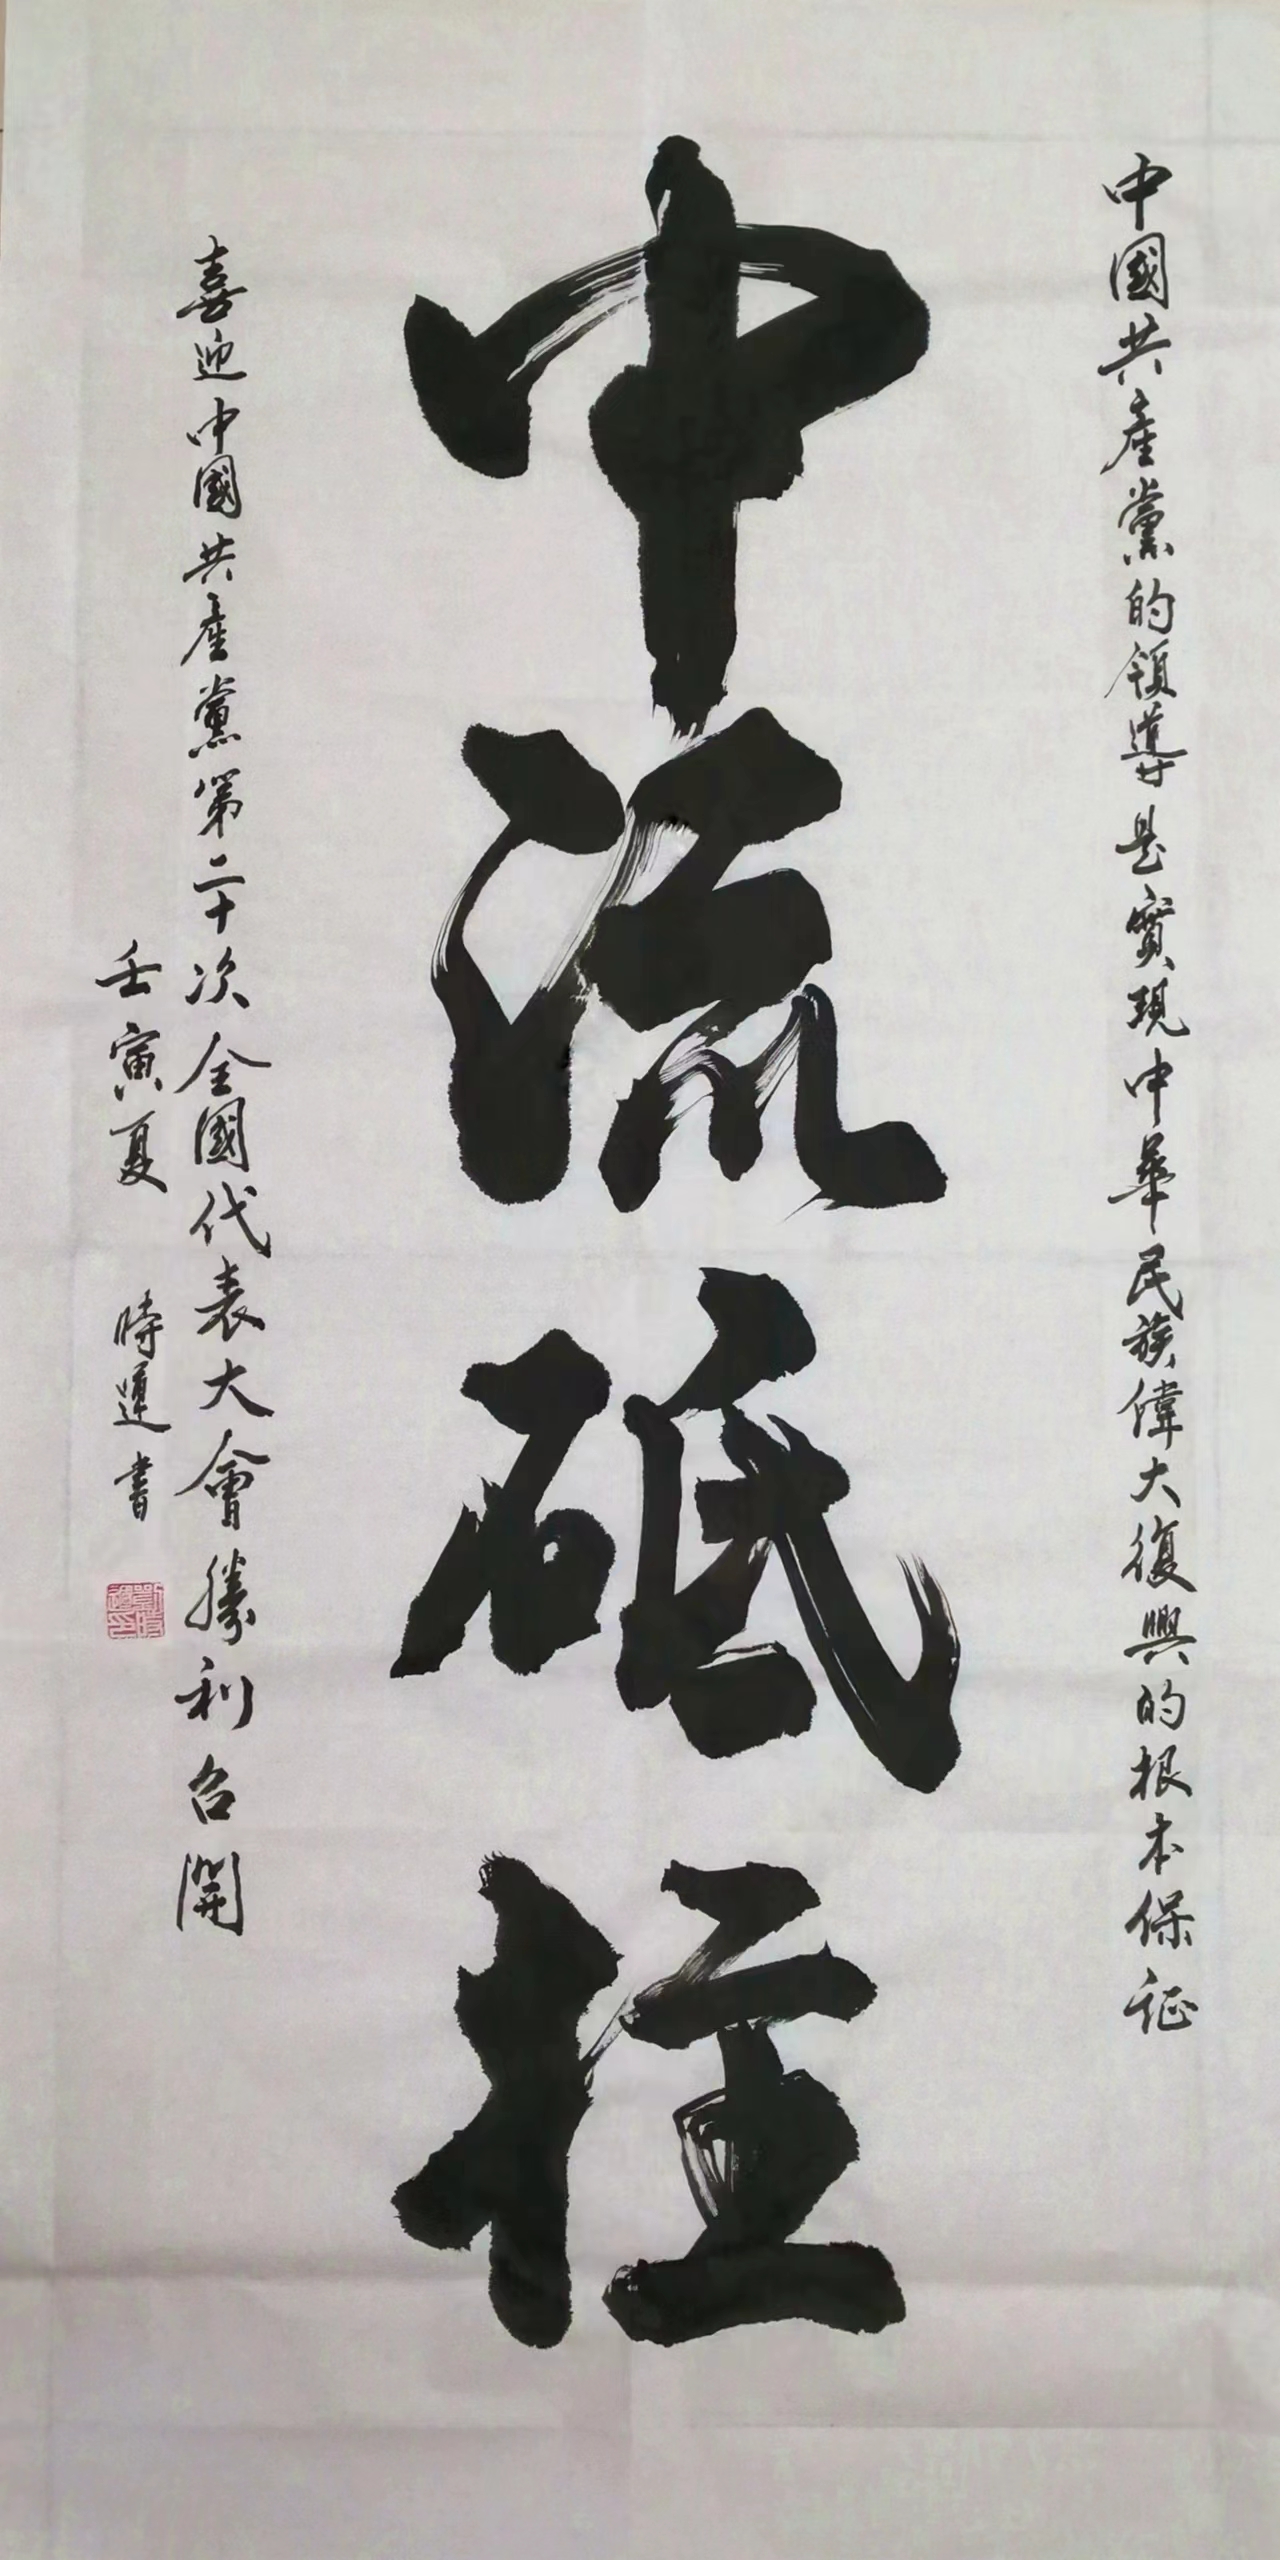 中國共産黨的領導是實現中華民族偉大復興的根本保証
中流砥柱
喜迎中國共産黨第二十次全國代表大會勝利召開
壬寅夏 時運書